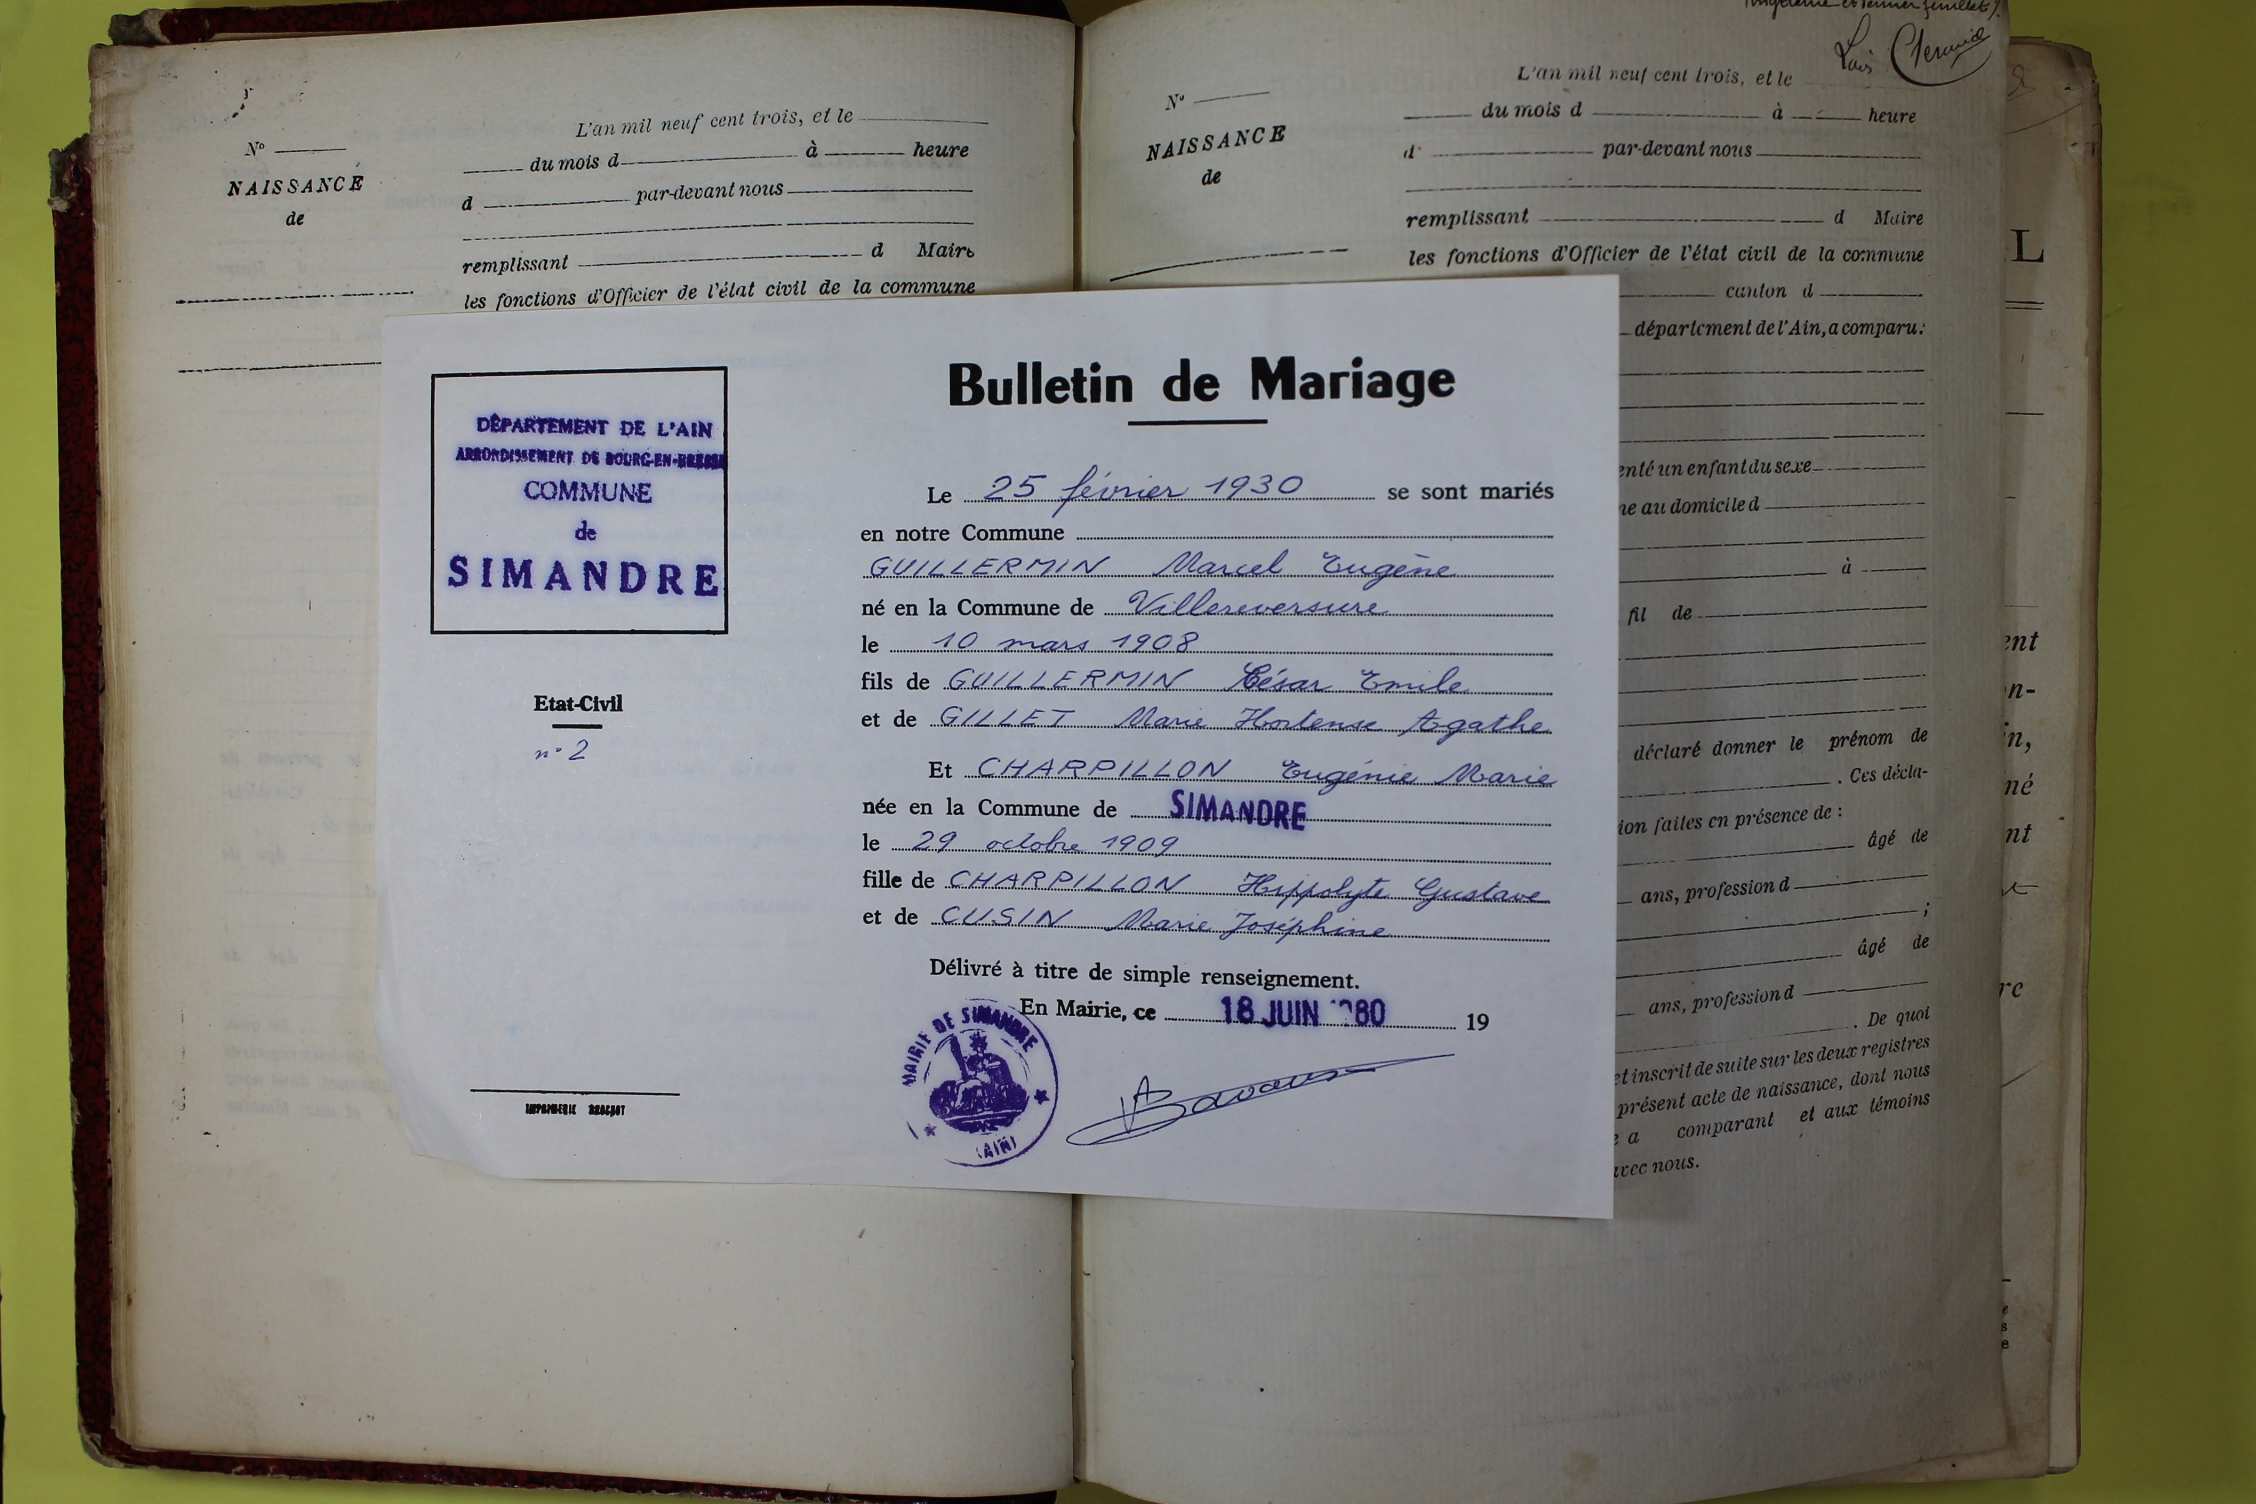 L'an mil neuf cent trois, et le
du mois d à heure
d par-devant nous
remplissant d Maire
les fonctions d'Officier de l'état civil de la commune
N°
NAISSANCE
de
DÉPARTEMENT DE L'AIN
ARRONDISSEMENT DE BOURG-EN-BRESSE
COMMUNE
de
SIMANDRE
Etat-Civil
n° 2
Bulletin de Mariage
Le 25 février 1930 se sont mariés
en notre Commune
GUILLERMIN Marcel Eugène
né en la Commune de Villereversure
le 10 mars 1908
fils de GUILLERMIN César Emile
et de GILLET Marie Hortense Agathe
Et CHARPILLON Eugénie Marie
née en la Commune de SIMANDRE
le 29 octobre 1909
fille de CHARPILLON Hippolyte Gustave
et de CUSIN Marie Joséphine
Délivré à titre de simple renseignement.
En Mairie, ce 18 JUIN 1980 19
MAIRIE DE SIMANDRE
(AIN)
et dernier feuillet
L'an mil neuf cent trois, et le
N°
du mois d à heure
NAISSANCE
de
d par-devant nous
remplissant d Maire
les fonctions d'Officier de l'état civil de la commune
canton d
département de l'Ain, a comparu:
enté un enfant du sexe
ne au domicile d
à
fil de
déclaré donner le prénom de
. Ces décla-
ion faites en présence de :
âgé de
ans, profession d
;
âgé de
ans, profession d
. De quoi
et inscrit de suite sur les deux registres
présent acte de naissance, dont nous
e a comparant et aux témoins
avec nous.
L
ent
on-
in,
né
nt